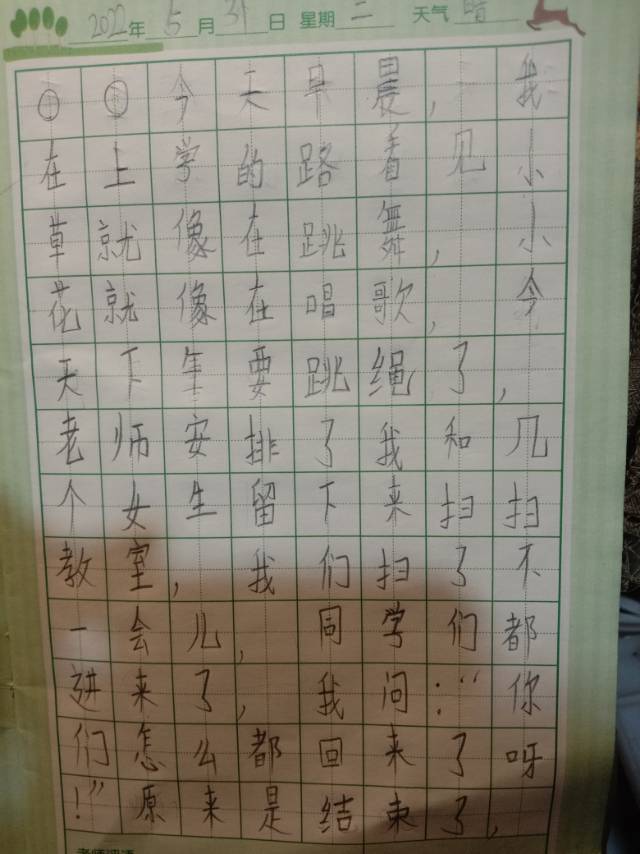 2022年5月31日 星期二 天气晴
今天早晨,我
在上学的路看见小
草就像在跳舞,小
花就像在唱歌,今
天下午要跳绳了,
老师安排了我和几
个女生留下来扫扫
教室,我们扫了不
一会儿,同学们都
进来了,我问:“你
们怎么都回来了呀
!”原来是结束了,